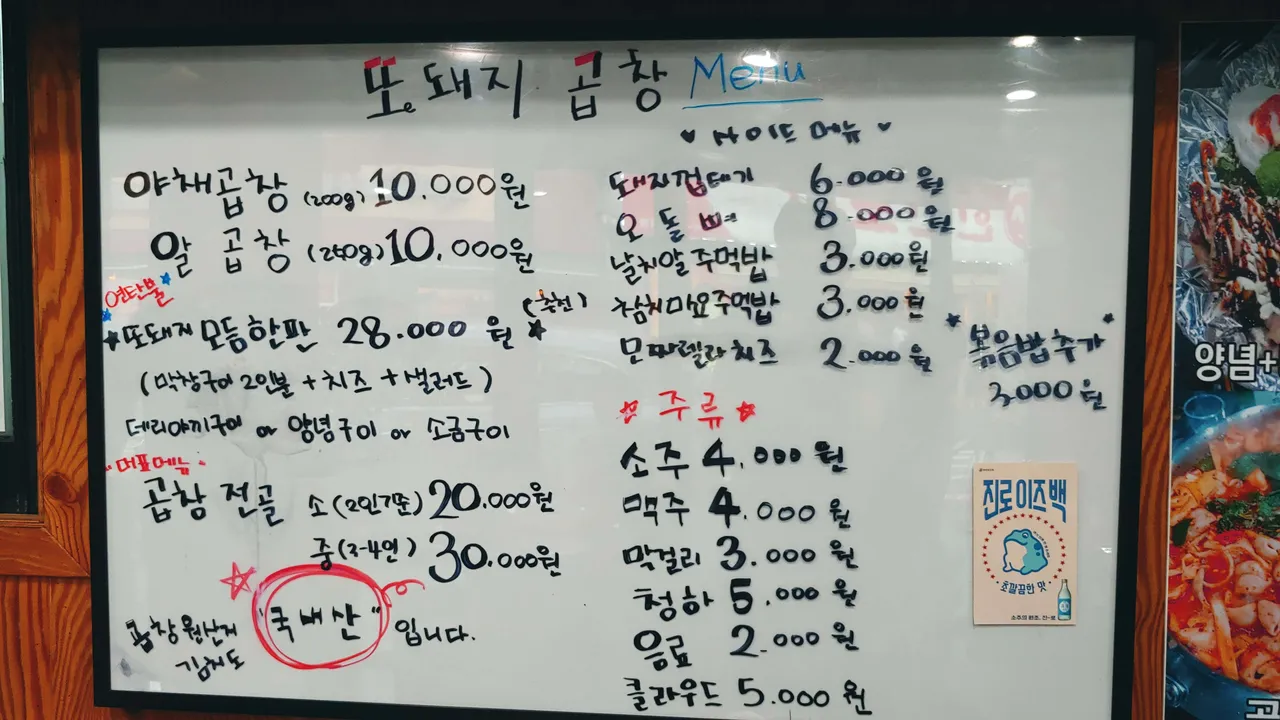 또돼지 곱창 Menu
야채곱창 (200g) 10.000원
알 곱창 (250g) 10.000원
연탄불
또돼지모듬한판 28.000 원 (추천)
(막창구이 2인분 + 치즈 + 샐러드)
데리야끼구이 or 양념구이 or 소금구이
"대표메뉴"
곱창 전골 소(2인기준) 20.000원
중(3-4인) 30.000원
곱창 원산지
김치도
"국내산" 입니다.
사이드 메뉴
돼지껍데기 6.000원
오돌뼈 8.000원
날치알주먹밥 3.000원
참치마요주먹밥 3.000원
모짜렐라치즈 2.000원
볶음밥추가
3.000원
주류
소주 4.000원
맥주 4.000원
막걸리 3.000원
청하 5.000원
음료 2.000원
클라우드 5.000원
진로이즈백
초깔끔한 맛
소주의 원조, 진-로
양념+